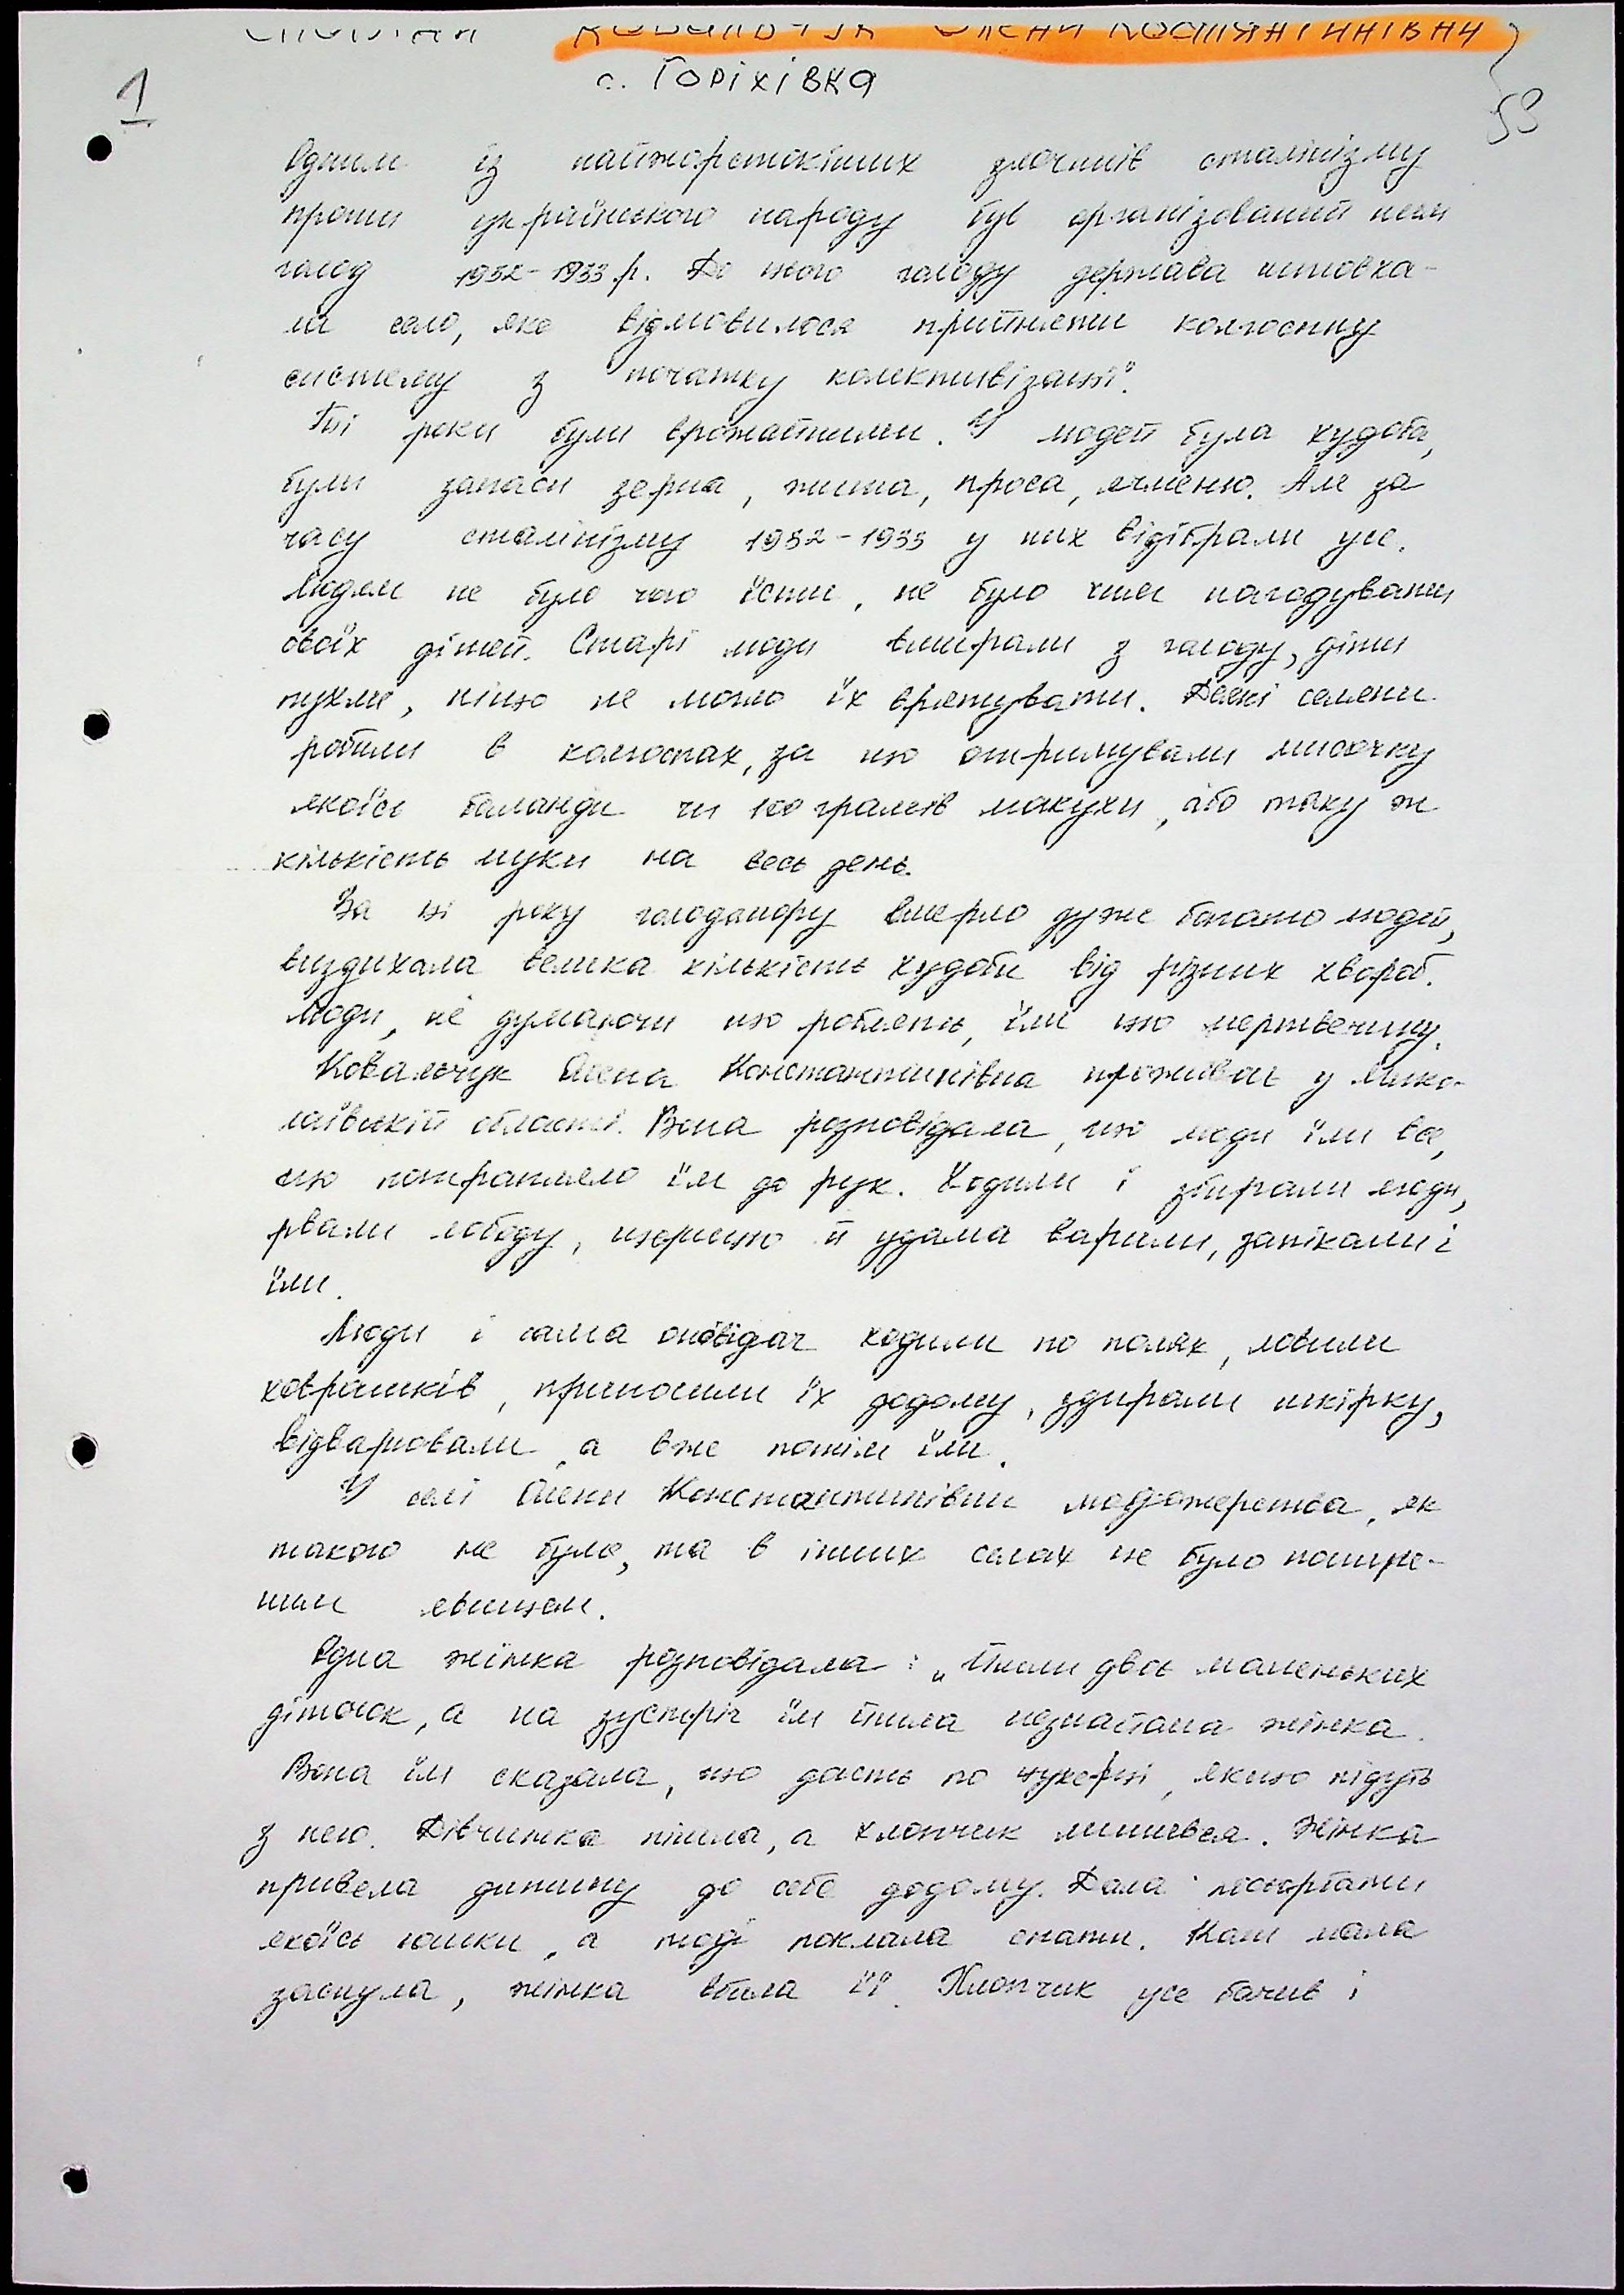 Спогади Ковальчук Олени Костянтинівни
с. Горіхівка
1
53
Одним із найжорстокіших злочинів сталінізму
проти українського народу був організований ним
голод 1932-1933 р. До цього голоду держава штовха-
ла село, яке відмовилося прийняти колгоспну
систему з початку колективізації.
Ті роки були врожайними. У людей була худоба,
були запаси зерна, жита, проса, ячменю. Але за
часу сталінізму 1932-1933 у них відібрали усе.
Людям не було чого їсти, не було чим нагодувати
своїх дітей. Старі люди вмирали з голоду, діти
пухли, ніщо не могло їх врятувати. Деякі селяни
робили в колгоспах, за що отримували мисочку
якоїсь баланди чи 100 грамів макухи, або таку ж
кількість муки на весь день.
За ці року голодомору вмерло дуже багато людей,
виздихала велика кількість худоби від різних хвороб.
Люди, не думаючи що роблять, їли цю мертвечину.
Ковальчук Олена Константинівна проживає у Мико-
лаївській області. Вона розповідала, що люди їли все,
що потрапляло їм до рук. Ходили і збирали люди,
рвали лободу, щирицю й удома варили, запікали і
їли.
Люди і сама оповідач ходили по полях, ловили
ховрашків, приносили їх додому, здирали шкірку,
відварювали, а вже потім їли.
У селі Олени Константинівни людожерства, як
такого не було, та в інших селах це було пошире-
ним явищем.
Одна жінка розповідала: „Йшли двоє маленьких
діточок, а на зустріч їм йшла незнайома жінка.
Вона їм сказала, що дасть по цукерці, якщо підуть
з нею. Дівчинка пішла, а хлопчик лишився. Жінка
привела дитину до себе додому. Дала посьорбати
якоїсь юшки, а тоді поклала спати. Коли мала
заснула, жінка вбила її. Хлопчик усе бачив і